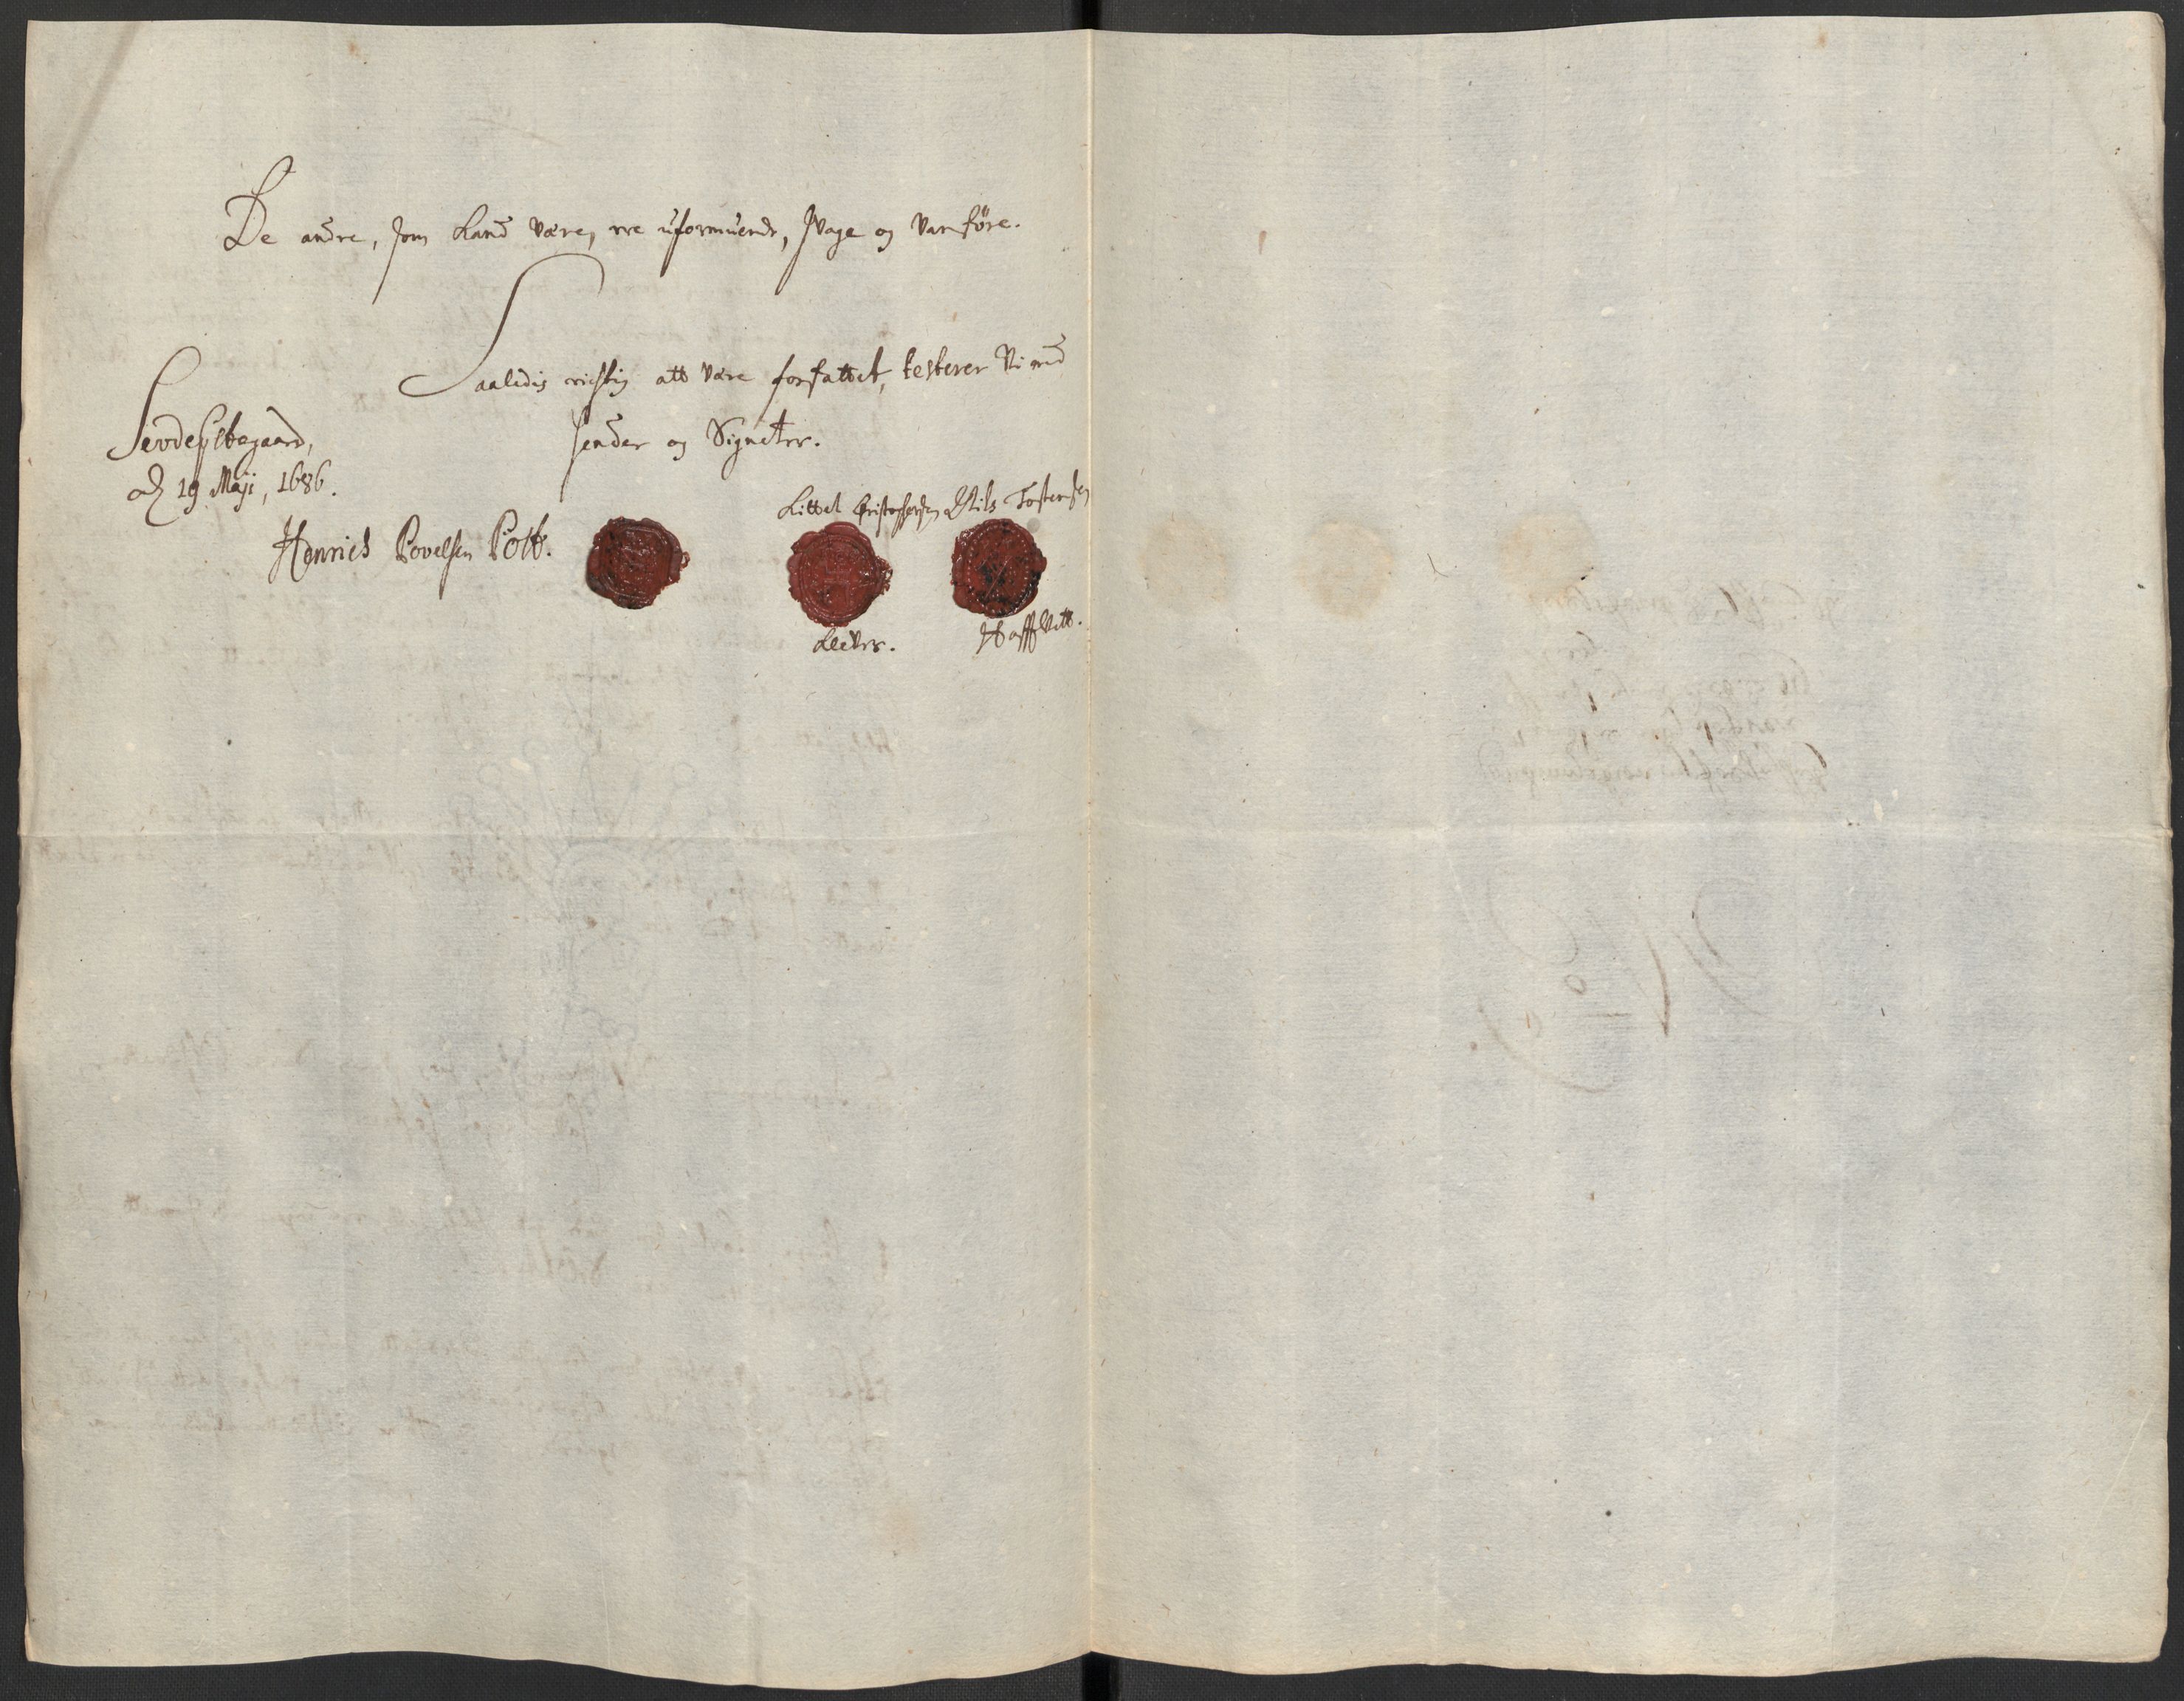 De andre, som kand være, ere uformuende, svage og vanføre.
Saaledis richtig att være forfattet, testerer Vi med
hender og Signeter.
Sevde Prestegaard,
d 19 Maji, 1686.
Henrich Povelsen Pott.
Kittel Cristophersen Nils Tostensen